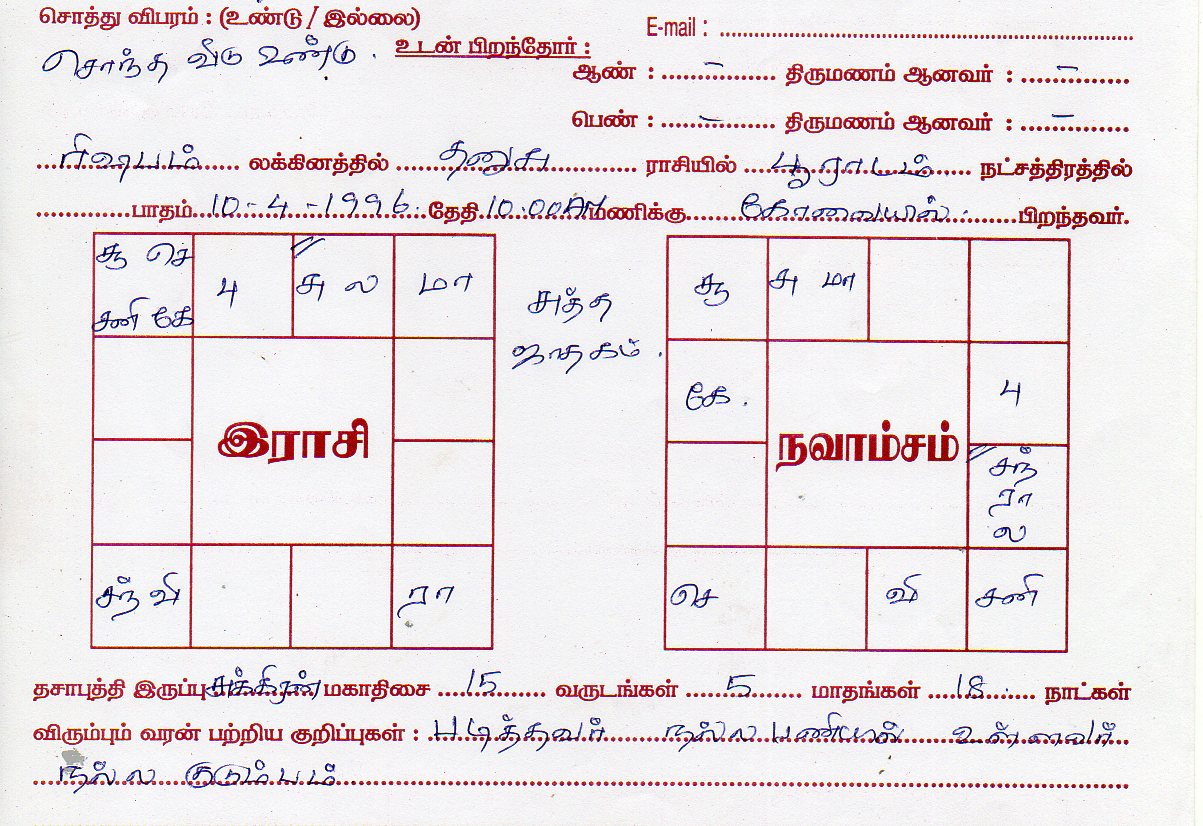 சொத்து விபரம் : (உண்டு / இல்லை)
E-mail :
சொந்த வீடு உண்டு .
உடன் பிறந்தோர் :
ஆண் : – திருமணம் ஆனவர் : –
பெண் : – திருமணம் ஆனவர் : –
ரிஷபம் லக்கினத்தில் தனுசு ராசியில் பூராடம் நட்சத்திரத்தில்
பாதம் 10-4-1996 தேதி 10.00AM மணிக்கு கோவையில் பிறந்தவர்.
சூ செ
சனி கே
பு
சு ல
மா
இராசி
சந் வி
ரா
சுத்த
ஜாதகம் .
சூ
சு மா
கே .
பு
நவாம்சம்
சந்
ரா
ல
செ
வி
சனி
தசாபுத்தி இருப்பு சுக்கிரன் மகாதிசை 15 வருடங்கள் 5 மாதங்கள் 18 நாட்கள்
விரும்பும் வரன் பற்றிய குறிப்புகள் : படித்தவர் நல்ல பணியில் உள்ளவர்
நல்ல குடும்பம்